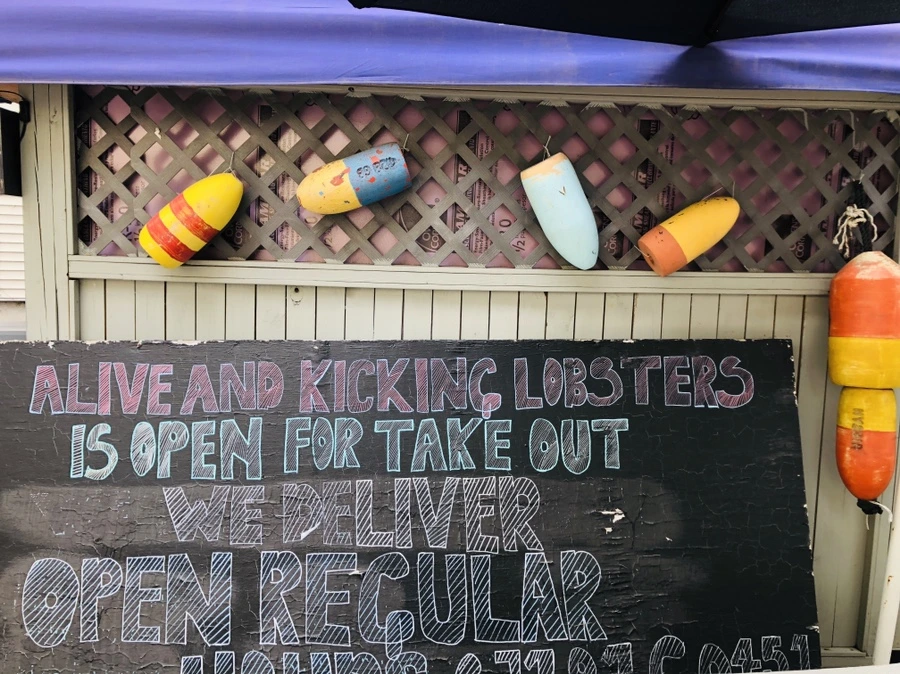 ALIVE AND KICKING LOBSTERS
IS OPEN FOR TAKE OUT
WE DELIVER
OPEN REGULAR